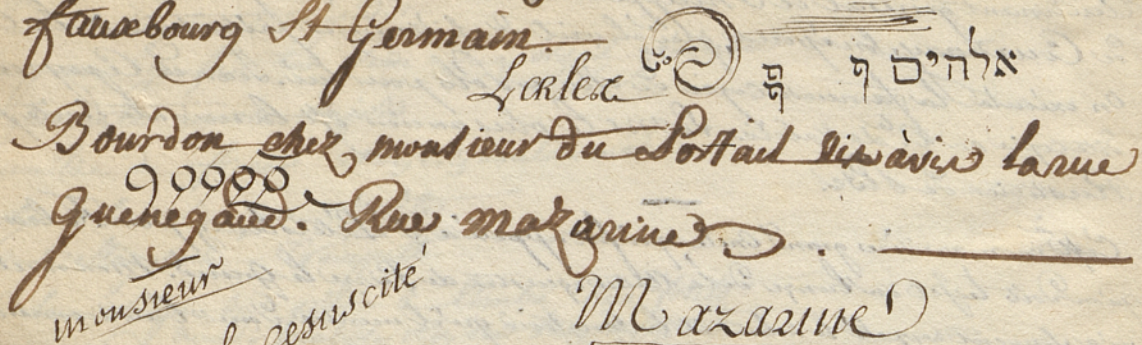 fauxbourg St Germain.
אלהים ף
ף
Bourdon chez monsieur du Portail vis à vis la rue
Guenegaud. Rue mazarine.
monsieur
resuscité
Mazarine